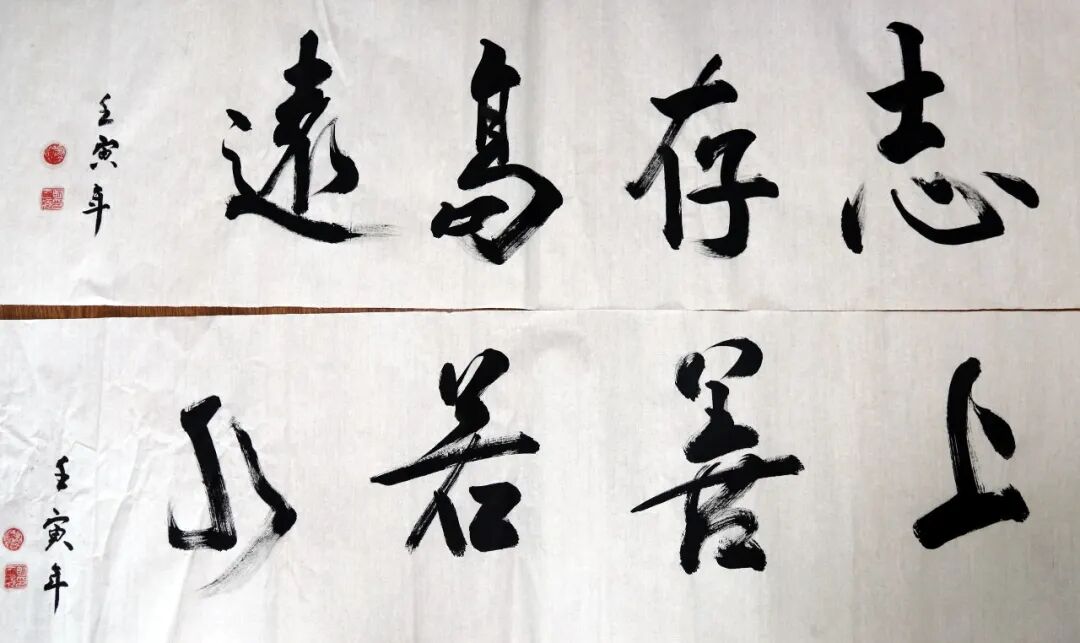 志存高遠
壬寅年
上善若水
壬寅年